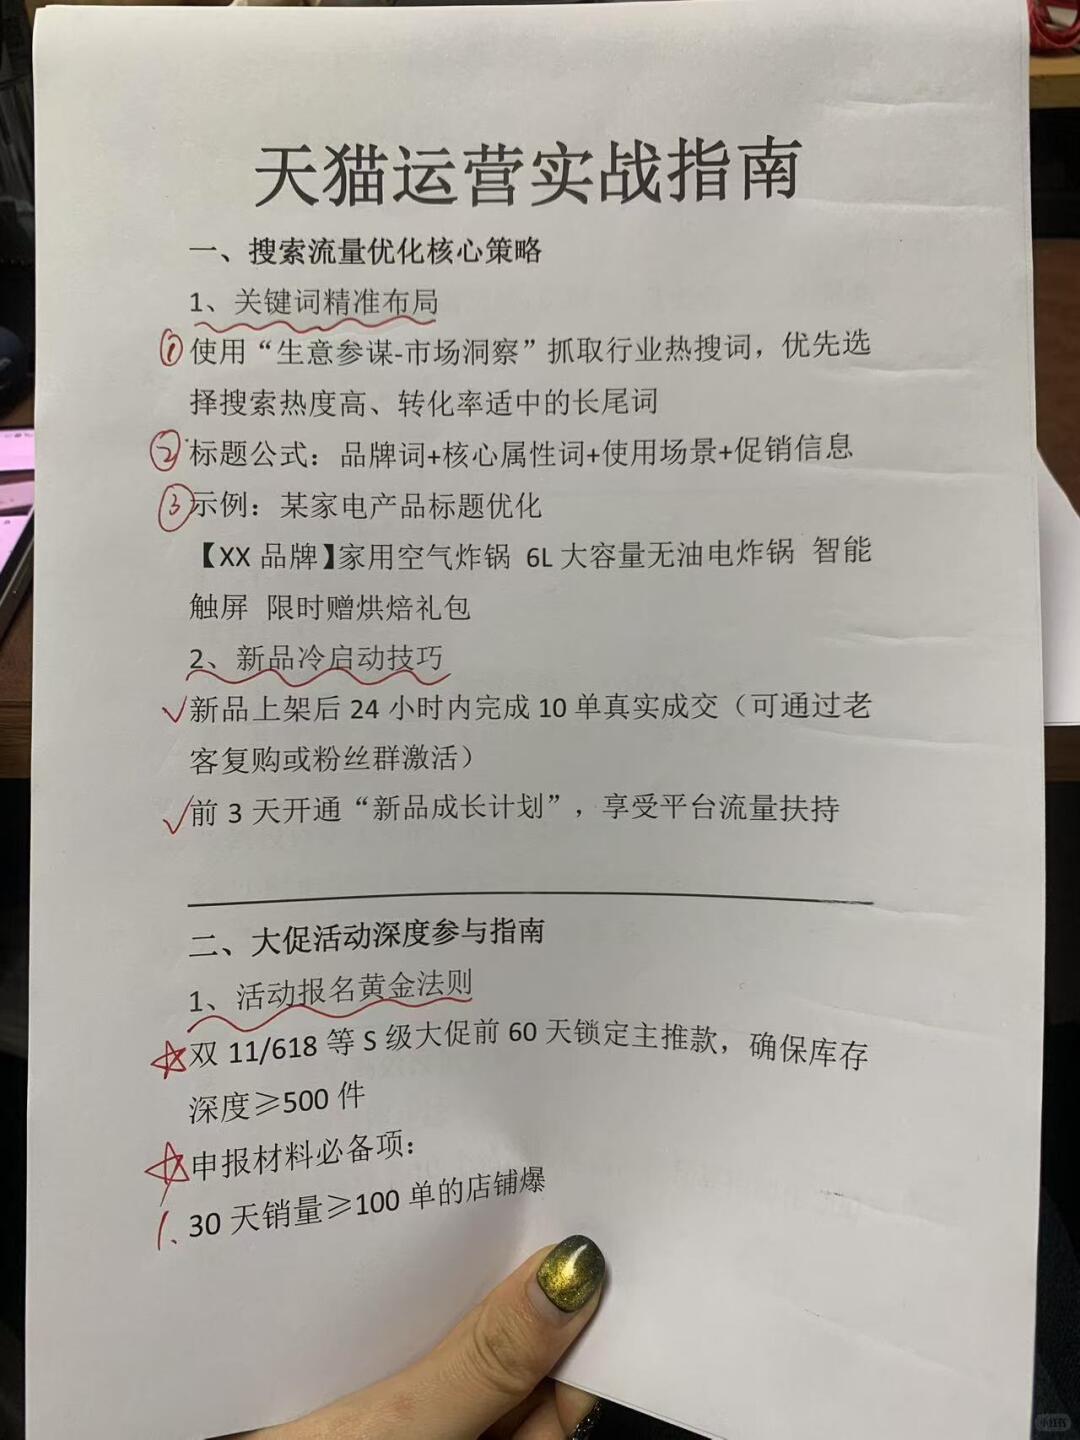 天猫运营实战指南
一、搜索流量优化核心策略
1、关键词精准布局
① 使用“生意参谋-市场洞察”抓取行业热搜词，优先选
择搜索热度高、转化率适中的长尾词
② 标题公式：品牌词+核心属性词+使用场景+促销信息
③ 示例：某家电产品标题优化
【XX 品牌】家用空气炸锅 6L 大容量无油电炸锅 智能
触屏 限时赠烘焙礼包
2、新品冷启动技巧
✓ 新品上架后 24 小时内完成 10 单真实成交（可通过老
客复购或粉丝群激活）
✓ 前 3 天开通“新品成长计划”，享受平台流量扶持
二、大促活动深度参与指南
1、活动报名黄金法则
☆ 双 11/618 等 S 级大促前 60 天锁定主推款，确保库存
深度≥500 件
☆ 申报材料必备项：
1. 30 天销量≥100 单的店铺爆
小红书